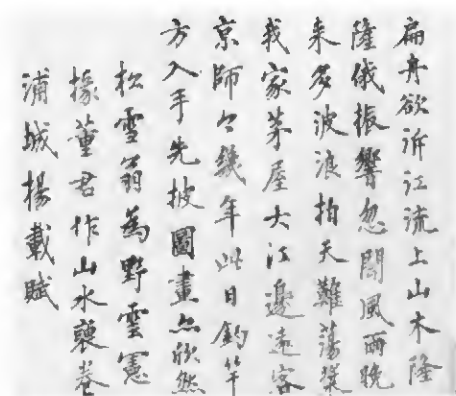 扁舟欲泝江流上山木隆
隆俄振響忽聞風雨晚
来多波浪拍天難蕩槳
我家茅屋大江邊遠客
京師今幾年此日釣竿
方入手先披圖畫亦欣然
松雪翁為野雲憲
掾董君作山水裹卷
浦城楊載賦